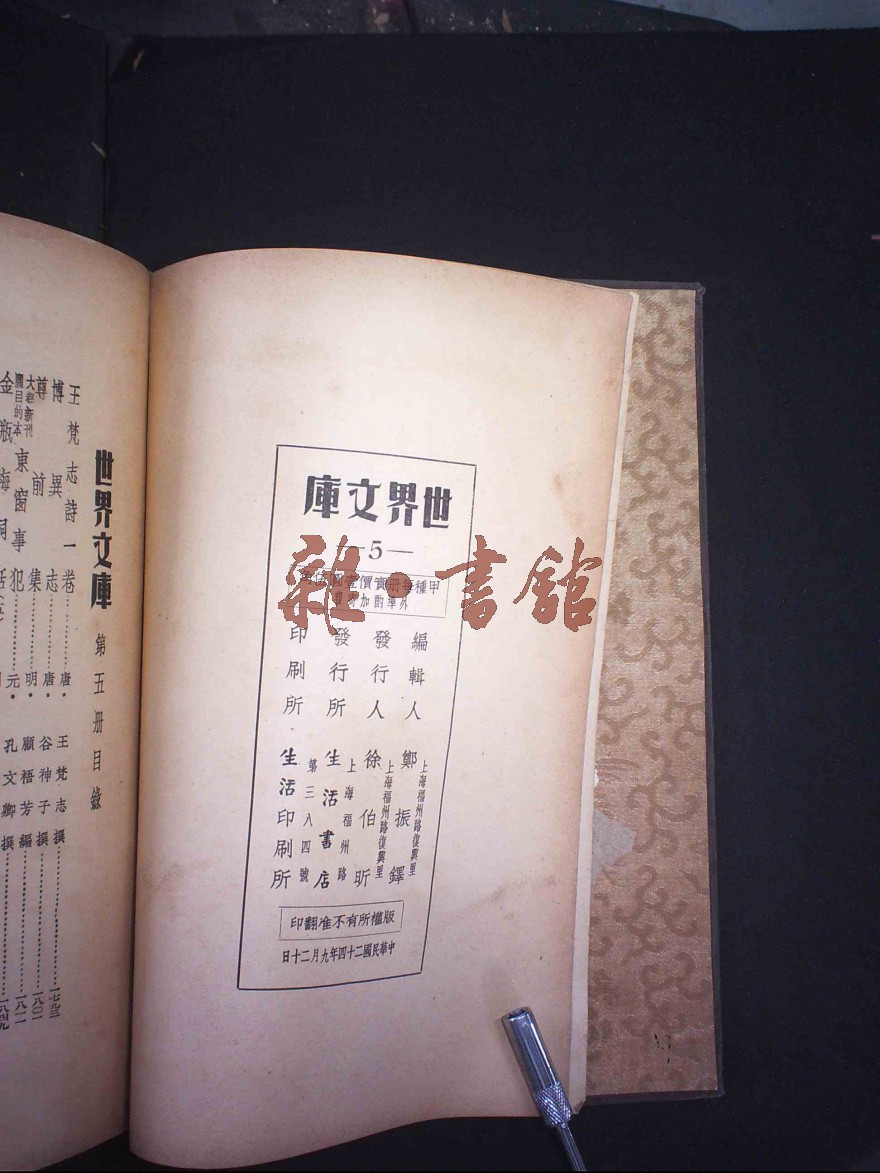 世界文庫
—5—
甲種每冊實價壹圓
外埠酌加寄費
編輯人 鄭振鐸
上海福州路復興里
發行人 徐伯昕
上海福州路復興里
發行所 生活書店
上海福州路
第三八四號
印刷所 生活印刷所
版權所有不准翻印
中華民國二十四年九月二十日
雜·書館
世界文庫 第五冊目錄
王梵志詩一卷…………唐·王梵志撰…………一七九三
博異志…………唐·谷神子撰…………一八〇一
尊前集…………明·顧梧芳編…………一八一一
大都新刊關目的本東窗事犯…………元·孔文卿撰…………一八四九
金瓶梅詞話